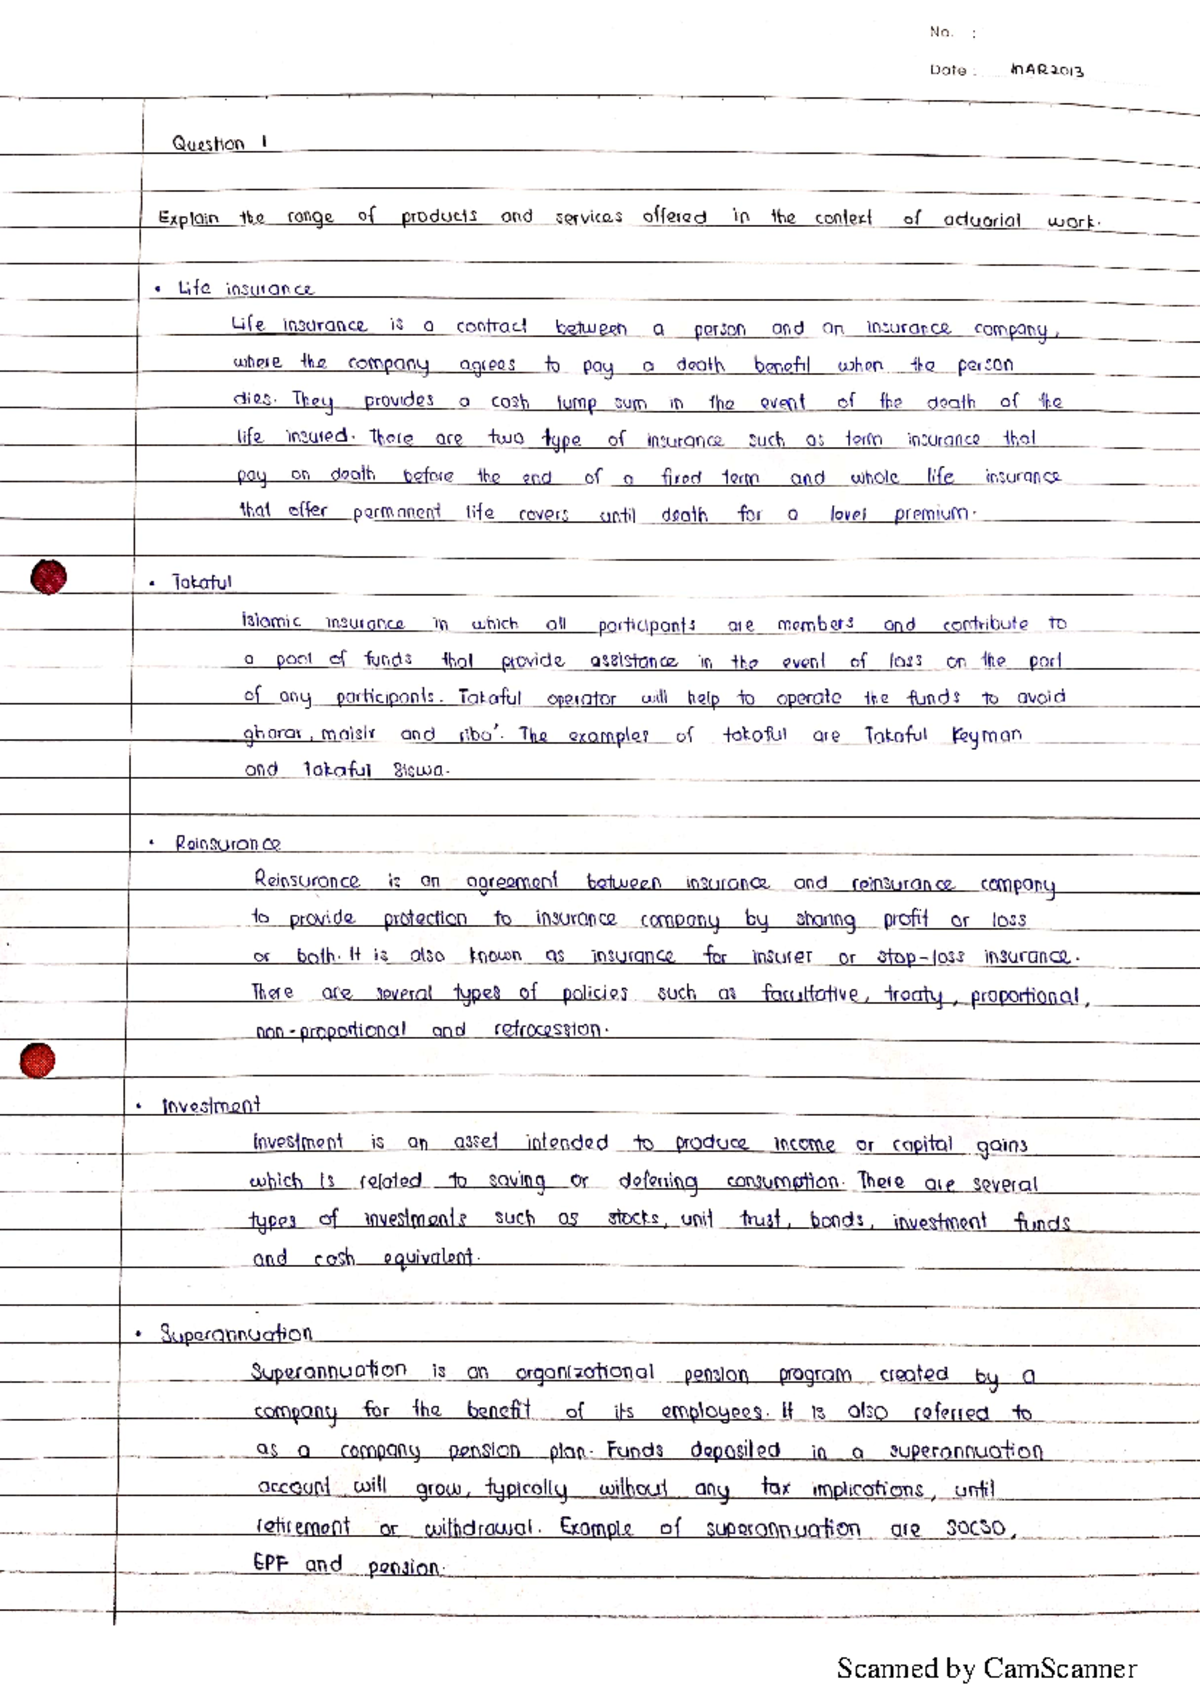 No. :
Date : MAR2013
Question 1
Explain the range of products and services offered in the context of actuarial work.
• Life insurance
Life insurance is a contract between a person and an insurance company,
where the company agrees to pay a death benefit when the person
dies. They provides a cash lump sum in the event of the death of the
life insured. There are two type of insurance such as term insurance that
pay on death before the end of a fixed term and whole life insurance
that offer permanent life covers until death for a level premium.
• Takaful
Islamic insurance in which all participants are members and contribute to
a pool of funds that provide assistance in the event of loss on the part
of any participants. Takaful operator will help to operate the funds to avoid
gharar, maisir and riba'. The examples of takaful are Takaful Keyman
and Takaful Siswa.
• Reinsurance
Reinsurance is an agreement between insurance and reinsurance company
to provide protection to insurance company by sharing profit or loss
or both. It is also known as insurance for insurer or stop-loss insurance.
There are several types of policies such as facultative, treaty, proportional,
non-proportional and retrocession.
• Investment
Investment is an asset intended to produce income or capital gains
which is related to saving or deferring consumption. There are several
types of investments such as stocks, unit trust, bonds, investment funds
and cash equivalent.
• Superannuation
Superannuation is an organizational pension program created by a
company for the benefit of its employees. It is also referred to
as a company pension plan. Funds deposited in a superannuation
account will grow, typically without any tax implications, until
retirement or withdrawal. Example of superannuation are SOCSO,
EPF and pension.
Scanned by CamScanner